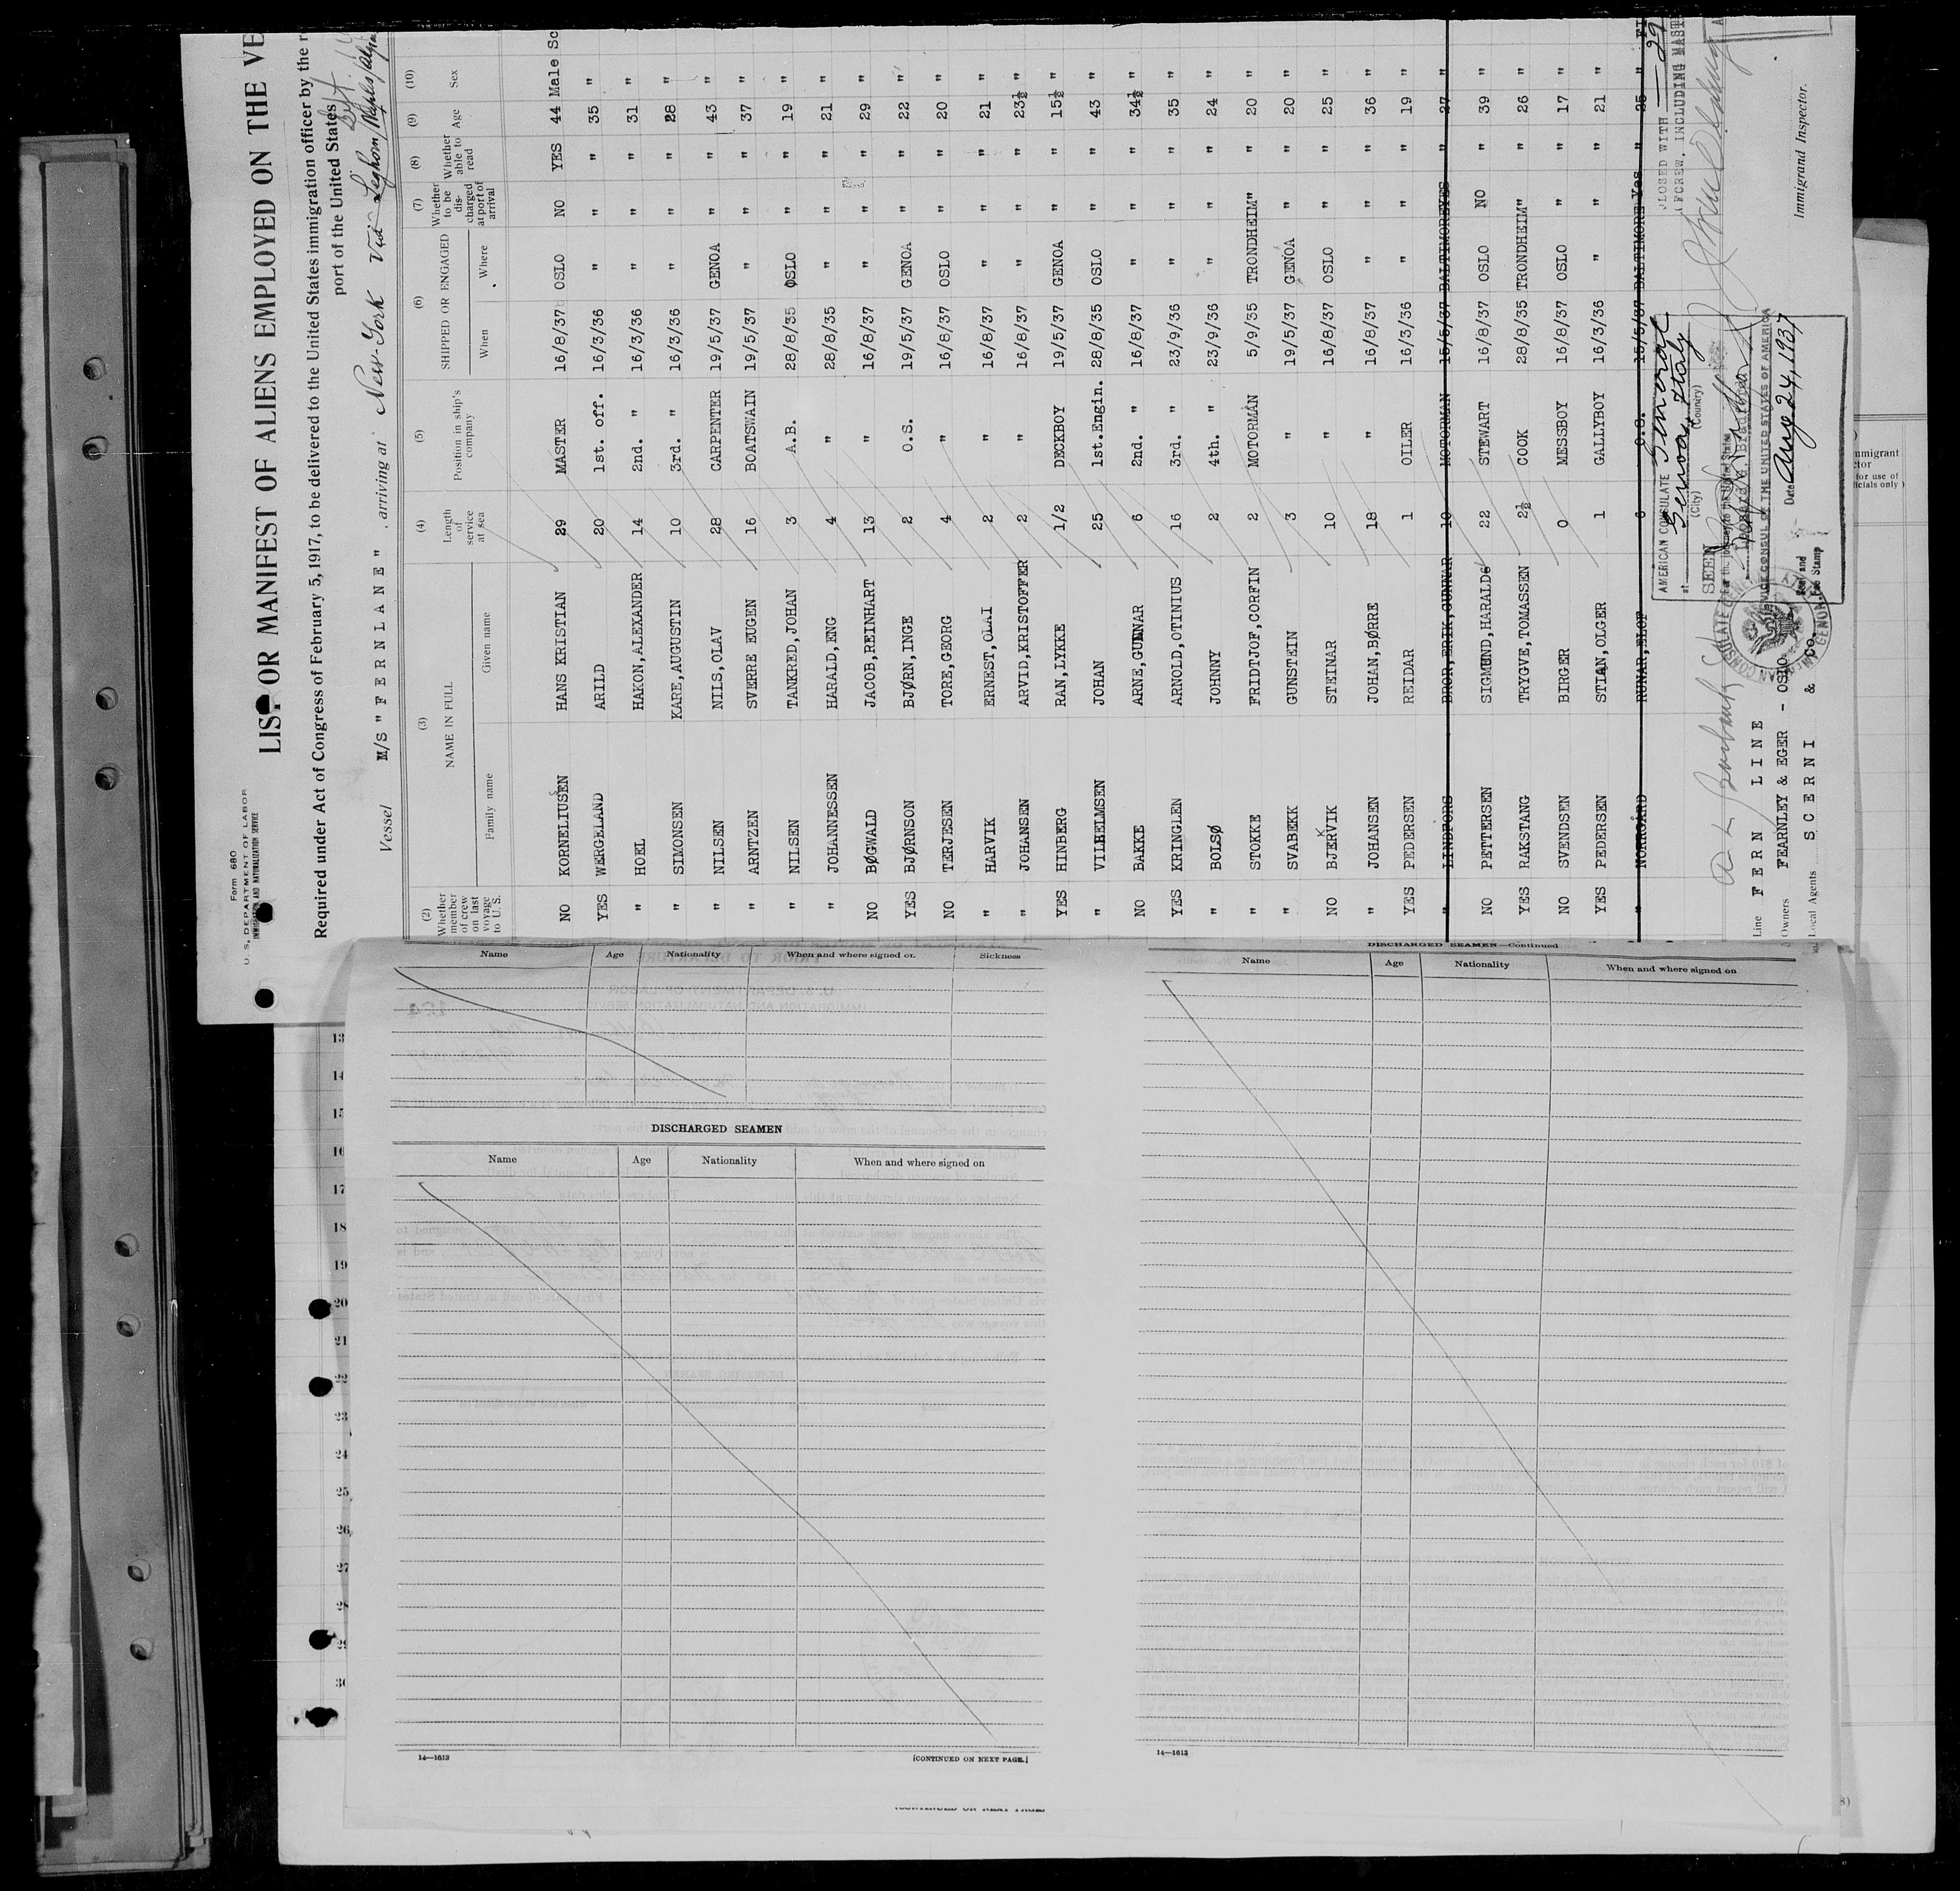 Form 680
U. S. DEPARTMENT OF LABOR
IMMIGRATION AND NATURALIZATION SERVICE
LIST OR MANIFEST OF ALIENS EMPLOYED ON THE VE
Required under Act of Congress of February 5, 1917, to be delivered to the United States immigration officer by the r
port of the United States
Vessel M/S "FERNLANE" , arriving at New-York via Leghorn/Naples/
(2) (3) (4) (5) (6) (7) (8) (9) (10)
Whether member of crew on last voyage to U. S. NAME IN FULL Family name Given name Length of service at sea Position in ship's company SHIPPED OR ENGAGED When Where Whether to be discharged at port of arrival Whether able to read Age Sex
NO KORNELIUSEN HANS KRISTIAN 29 MASTER 16/8/37 OSLO NO YES 44 Male Sc
YES WERGELAND ARILD 20 1st. off. 16/3/36 " " " 35 "
" HOEL HAKON,ALEXANDER 14 2nd. " 16/3/36 " " " 31 "
" SIMONSEN KARE,AUGUSTIN 10 3rd. " 16/3/36 " " " 28 "
" NILSEN NILS,OLAV 28 CARPENTER 19/5/37 GENOA " " 43 "
" ARNTZEN SVERRE EUGEN 16 BOATSWAIN 19/5/37 " " " 37 "
" NILSEN TANKRED,JOHAN 3 A.B. 28/8/35 OSLO " " 19 "
" JOHANNESSEN HARALD,ENG 4 " 28/8/35 " " " 21 "
NO BØGWALD JACOB,REINHART 13 " 16/8/37 " " " 29 "
YES BJØRNSON BJØRN,INGE 2 O.S. 19/5/37 GENOA " " 22 "
NO TERJESEN TORE,GEORG 4 " 16/8/37 OSLO " " 20 "
" HARVIK ERNEST,OLAI 2 " 16/8/37 " " " 21 "
" JOHANSEN ARVID,KRISTOFFER 2 " 16/8/37 " " " 23½ "
YES HINBERG RAN,LYKKE 1/2 DECKBOY 19/5/37 GENOA " " 15½ "
" VILHELMSEN JOHAN 25 1st.Engin. 28/8/35 OSLO " " 43 "
NO BAKKE ARNE,GUNNAR 6 2nd. " 16/8/37 " " " 34½ "
YES KRINGLEN ARNOLD,OTINIUS 16 3rd. " 23/9/36 " " " 35 "
" BOLSØ JOHNNY 2 4th. " 23/9/36 " " " 24 "
" STOKKE FRIDTJOF,CORFIN 2 MOTORMAN 5/9/35 TRONDHEIM " " 20 "
" SVABEKK GUNSTEIN 3 " 19/5/37 GENOA " " 20 "
NO BJERVIK STEINAR 10 " 16/8/37 OSLO " " 25 "
" JOHANSEN JOHAN,BØRRE 18 " 16/8/37 " " " 36 "
YES PEDERSEN REIDAR 1 OILER 16/3/36 " " " 19 "
" LINDFORS BROR,ERIK,GUNNAR 10 MOTORMAN 15/5/37 BALTIMORE YES " 27 "
NO PETTERSEN SIGMUND,HARALD 22 STEWART 16/8/37 OSLO NO " 39 "
YES RAKSTANG TRYGVE,TOMASSEN 2½ COOK 28/8/35 TRONDHEIM " " 26 "
NO SVENDSEN BIRGER 0 MESSBOY 16/8/37 OSLO " " 17 "
YES PEDERSEN STIAN,OLGER 1 GALLYBOY 16/3/36 " " " 21 "
" NORRGÅRD RUNAR,ELOF 6 O.S. 15/5/37 BALTIMORE Yes " 25 " FI
CLOSED WITH 29
OF CREW, INCLUDING MAST
AMERICAN CONSULATE General
at Genoa, Italy
(City) (Country)
SEEN
VICE CONSUL OF THE UNITED STATES OF AMERICA
Date Aug 24, 1937
Seal and Fee Stamp
Line FERN LINE
Owners FEARNLEY & EGER - OSLO
Local Agents SCERNI & CO.
Immigrant Inspector.
mmigrant
ctor
for use of
icials only)
Name Age Nationality When and where signed or. Sickness
DISCHARGED SEAMEN
Name Age Nationality When and where signed on
14—1613 [CONTINUED ON NEXT PAGE.]
DISCHARGED SEAMEN—Continued
Name Age Nationality When and where signed on
14—1613
13
14
15
16
17
18
19
20
21
22
23
24
25
26
27
28
29
30
(CONTINUED ON NEXT PAGE)